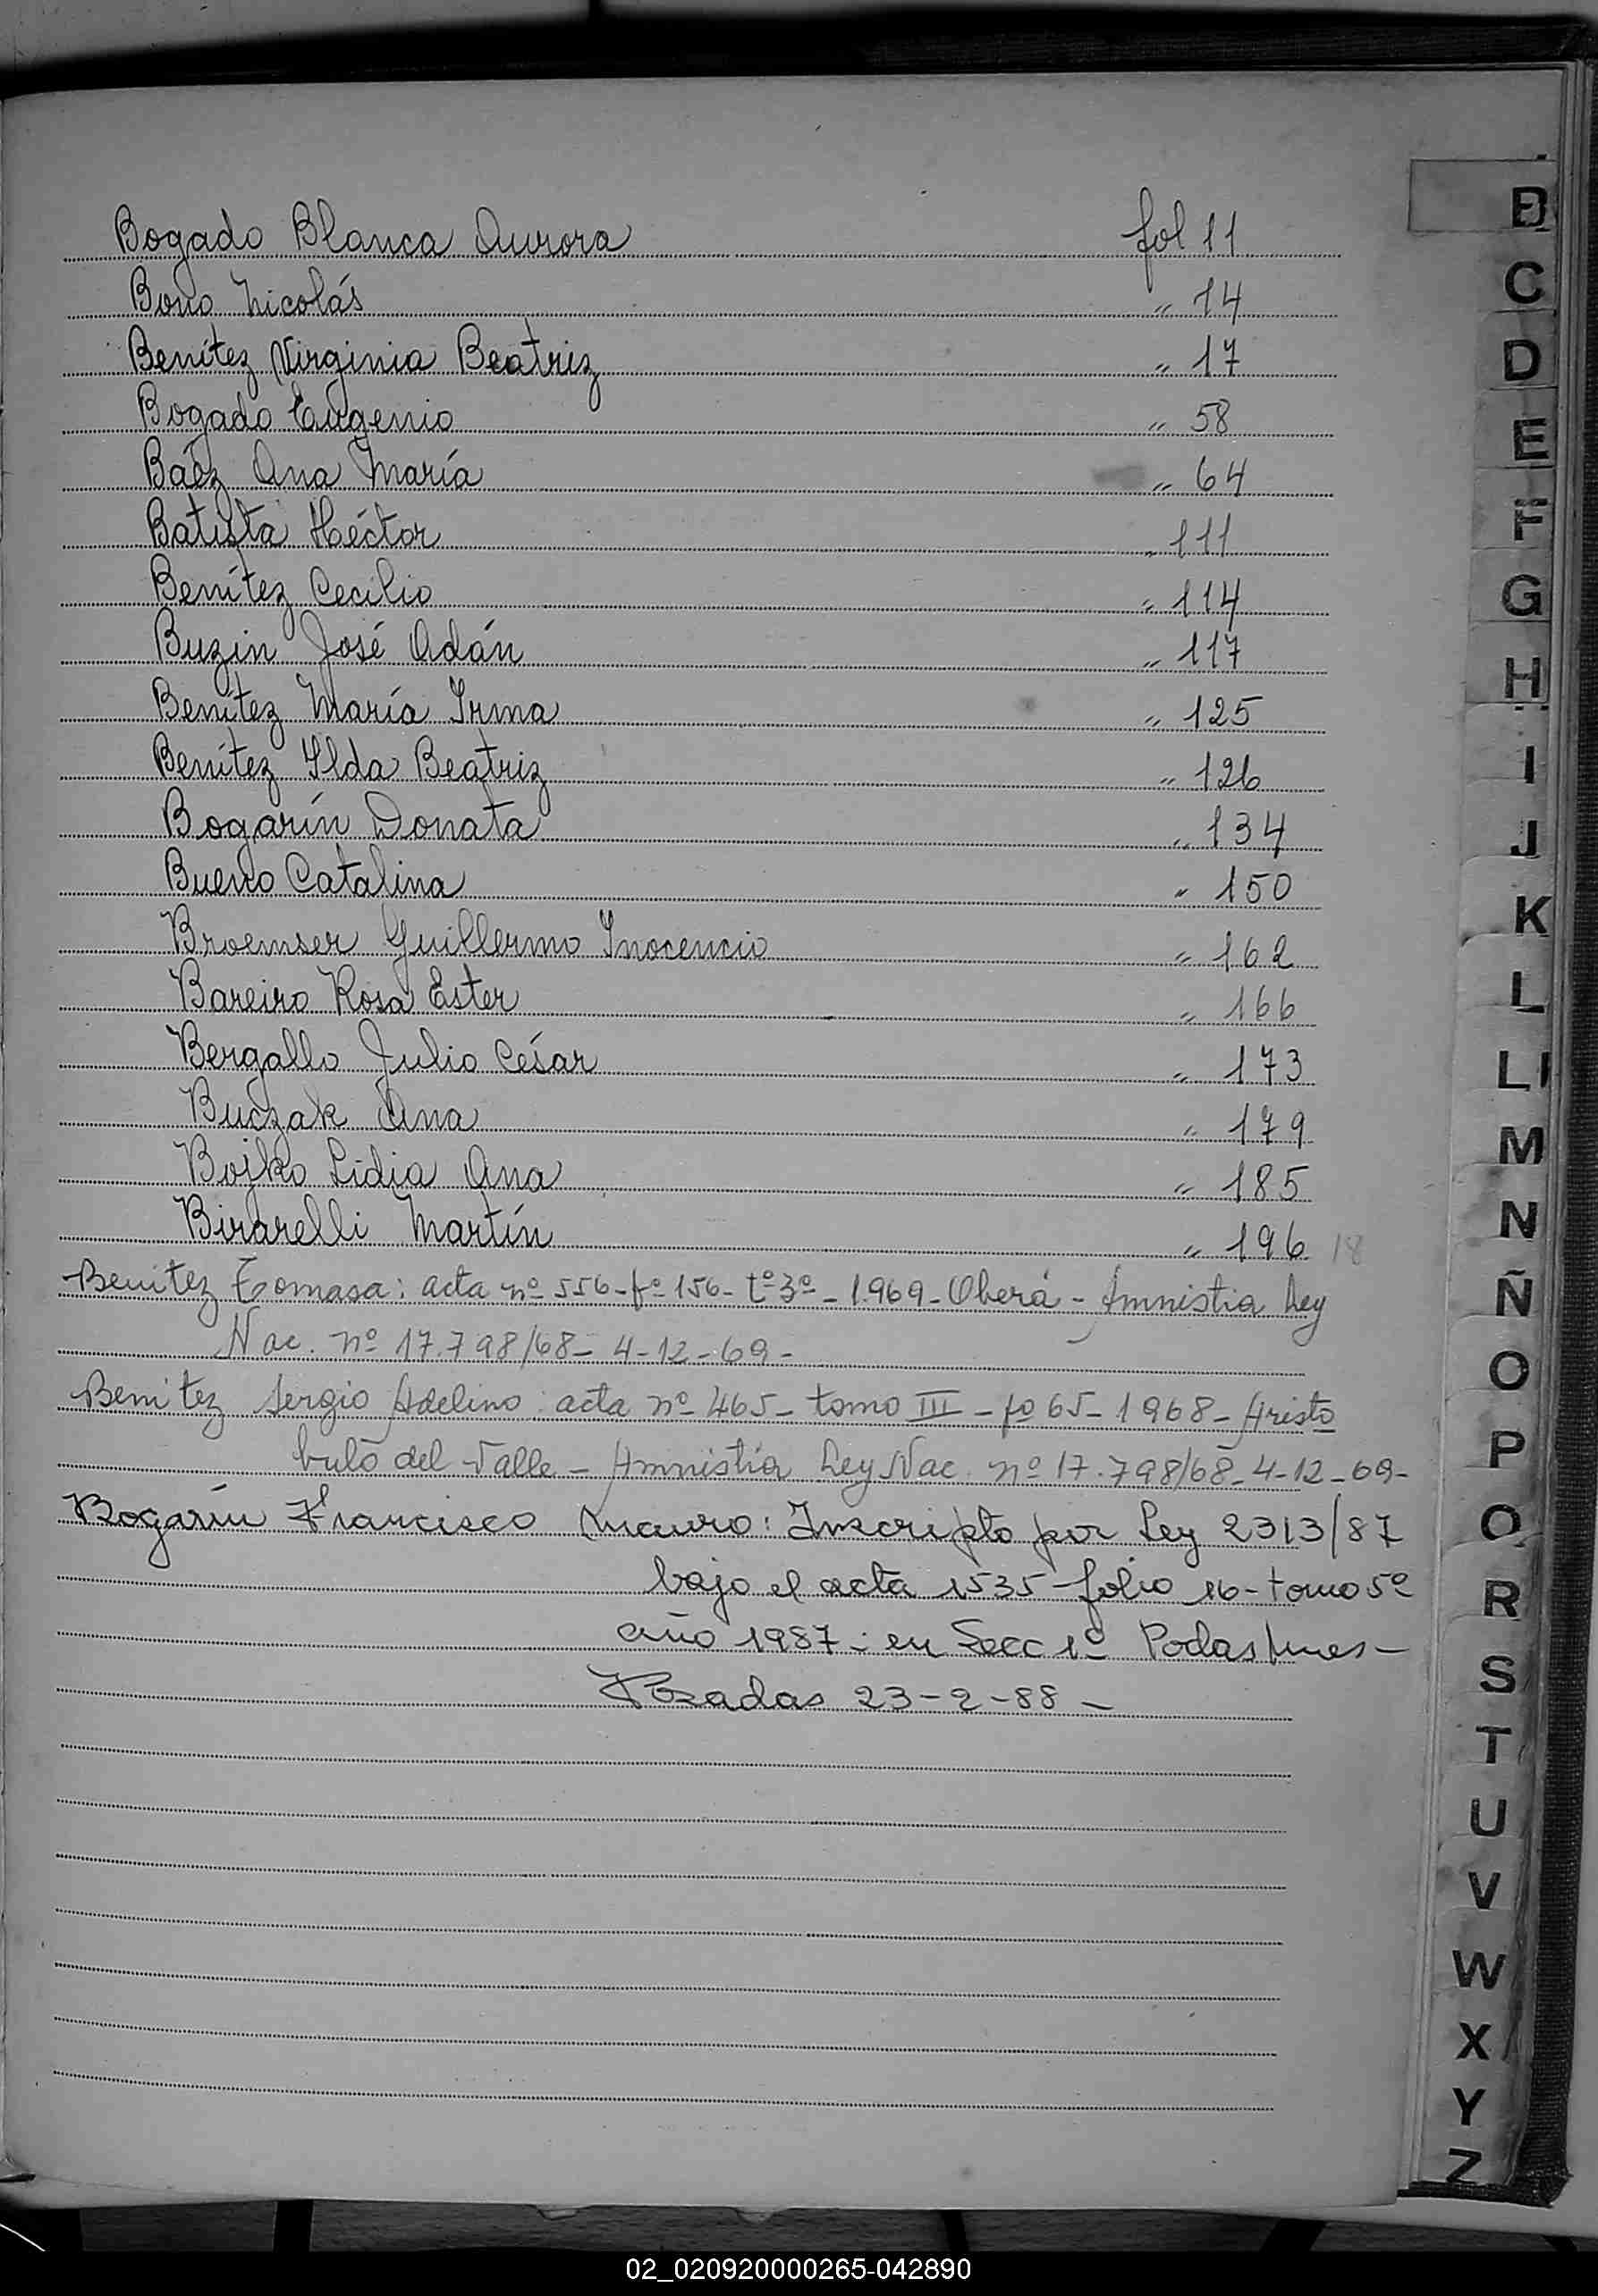 Bogado Blanca Aurora fol 11
Bono Nicolás " 14
Benítez Virginia Beatriz " 17
Bogado Eugenio " 58
Báez Ana María " 64
Batista Héctor " 111
Benítez Cecilio " 114
Buzin José Adán " 117
Benítez María Irma " 125
Benítez Ilda Beatriz " 126
Bogarín Donata " 134
Bueno Catalina " 150
Broemser Guillermo Inocencio " 162
Bareiro Rosa Ester " 166
Bergallo Julio César " 173
Buczak Ana " 179
Bojko Lidia Ana " 185
Birarelli Martín " 196 18
Benitez Tomasa: acta nº 556- fº 156- tº 3º - 1.969- Oberá - Amnistia Ley
Nac. nº 17.798/68- 4-12-69-
Benitez Sergio Adelino: acta nº 465- tomo III - fº 65- 1968- Aristo
bulo del Valle - Amnistía Ley Nac. nº 17.798/68- 4-12-69-
Bogarín Francisco Mauro: Inscripto por Ley 2313/87
bajo el acta 1535- folio 16- tomo 5º
año 1987- en Secc 1º Posadas Mnes-
Posadas 23-2-88-
B
C
D
E
F
G
H
I
J
K
L
Ll
M
N
Ñ
O
P
Q
R
S
T
U
V
W
X
Y
Z
02_020920000265-042890